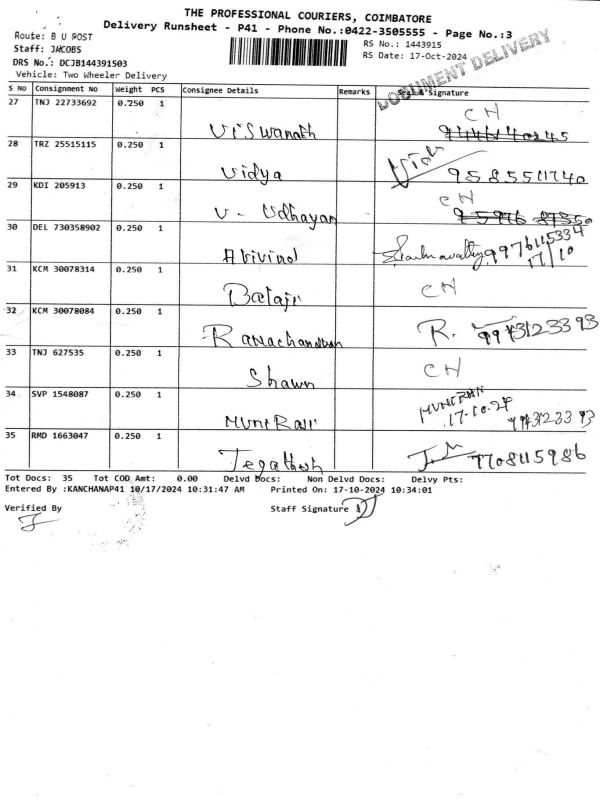 THE PROFESSIONAL COURIERS, COIMBATORE
Delivery Runsheet - P41 - Phone No.:0422-3505555 - Page No.:3
Route: B U POST
RS No.: 1443915
Staff: JACOBS
RS Date: 17-Oct-2024
DRS No.: DCJB144391503
DOCUMENT DELIVERY
Vehicle: Two Wheeler Delivery
S No Consignment No Weight PCS Consignee Details Remarks Seal & Signature
27 TNJ 22733692 0.250 1 Viswanath CH
28 TRZ 25515115 0.250 1 Vidya 9585511740
29 KDI 205913 0.250 1 V. Udhayan CH
30 DEL 730358902 0.250 1 9976115334
17/10
31 KCM 30078314 0.250 1 Balaji CH
32 KCM 30078084 0.250 1 R. 9943123393
33 TNJ 627535 0.250 1 Shawn CH
34 SVP 1548087 0.250 1 MuniRaj MUNIRAJ
17-10-24 9943123393
35 RMD 1663047 0.250 1 7708115986
Tot Docs: 35 Tot COD Amt: 0.00 Delvd Docs: Non Delvd Docs: Delvy Pts:
Entered By :KANCHANAP41 10/17/2024 10:31:47 AM Printed On: 17-10-2024 10:34:01
Verified By Staff Signature